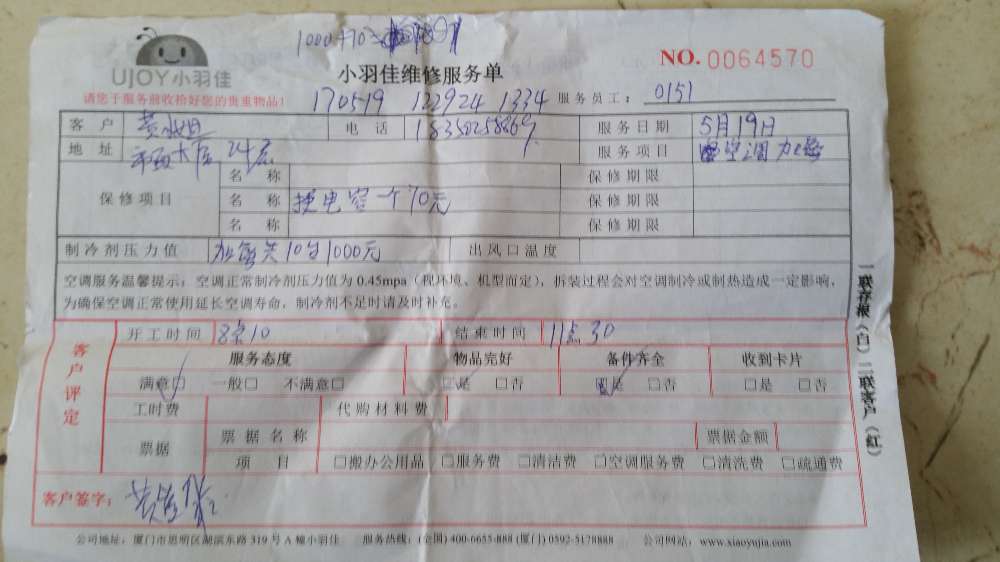 1000+70
UJOY小羽佳
小羽佳维修服务单
NO. 0064570
请您于服务前收拾好您的贵重物品!
170519 122924 1334 服务员工: 0151
客户 黄 电话 服务日期 5月19日
地址 24层 服务项目 空调加
保修项目 名称 保修期限
名称 换电容一个70元 保修期限
名称 保修期限
制冷剂压力值 共10台1000元 出风口温度
空调服务温馨提示: 空调正常制冷剂压力值为 0.45mpa (视环境、机型而定), 拆装过程会对空调制冷或制热造成一定影响,
为确保空调正常使用延长空调寿命, 制冷剂不足时请及时补充。
开工时间 8点10 结束时间 11点30
客户评定
服务态度 物品完好 备件齐全 收到卡片
满意□ 一般□ 不满意□ □是 □否 □是 □否 □是 □否
工时费 代购材料费
票据 票据名称 票据金额
项目 □搬办公用品 □服务费 □清洁费 □空调服务费 □清洗费 □疏通费
客户签字:
一联存根(白) 二联客户(红)
公司地址: 厦门市思明区湖滨东路 319 号 A 幢小羽佳 服务热线: (全国) 400-6655-888 (厦门) 0592-5178888 公司网站: www.xiaoyujia.com